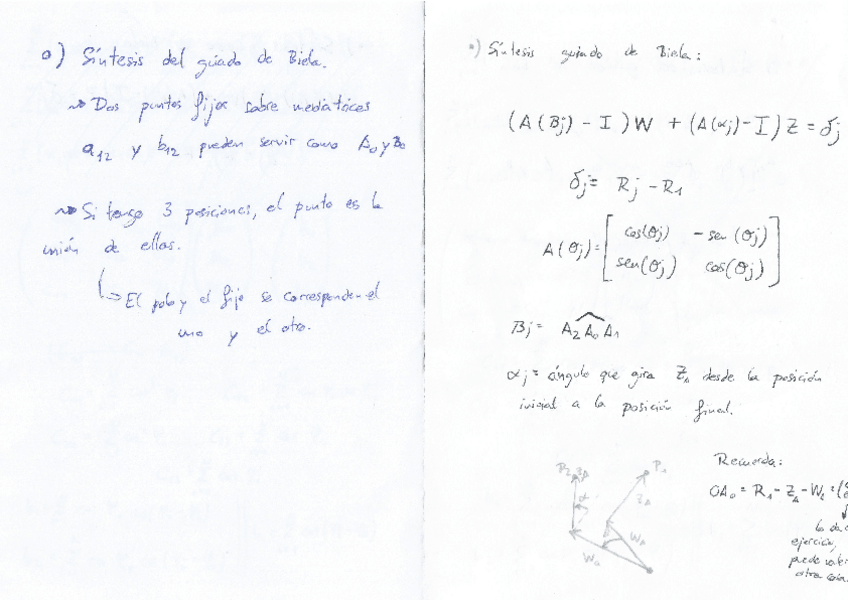 o) Síntesis del guiado de Biela.
~> Dos puntos fijos sobre mediatrices
a12 y b12 pueden servir como A0 y B0
~> Si tengo 3 posiciones, el punto es la
unión de ellas.
↳ El polo y el fijo se corresponden el
uno y el otro.
o) Síntesis guiado de Biela:
(A(Bj) - I)W + (A(αj) - I)Z = δj
δj = Rj - R1
A(θj) = [ cos(θj) - sen(θj)
sen(θj) cos(θj) ]
Bj = A2 A0 A1
αj = ángulo que gira ZA desde la posición
inicial a la posición final.
P2
P1
α
ZA
WA
W2
Recuerda:
OA0 = R1 - ZA - W
ejercicio,
puede valer
otra cosa